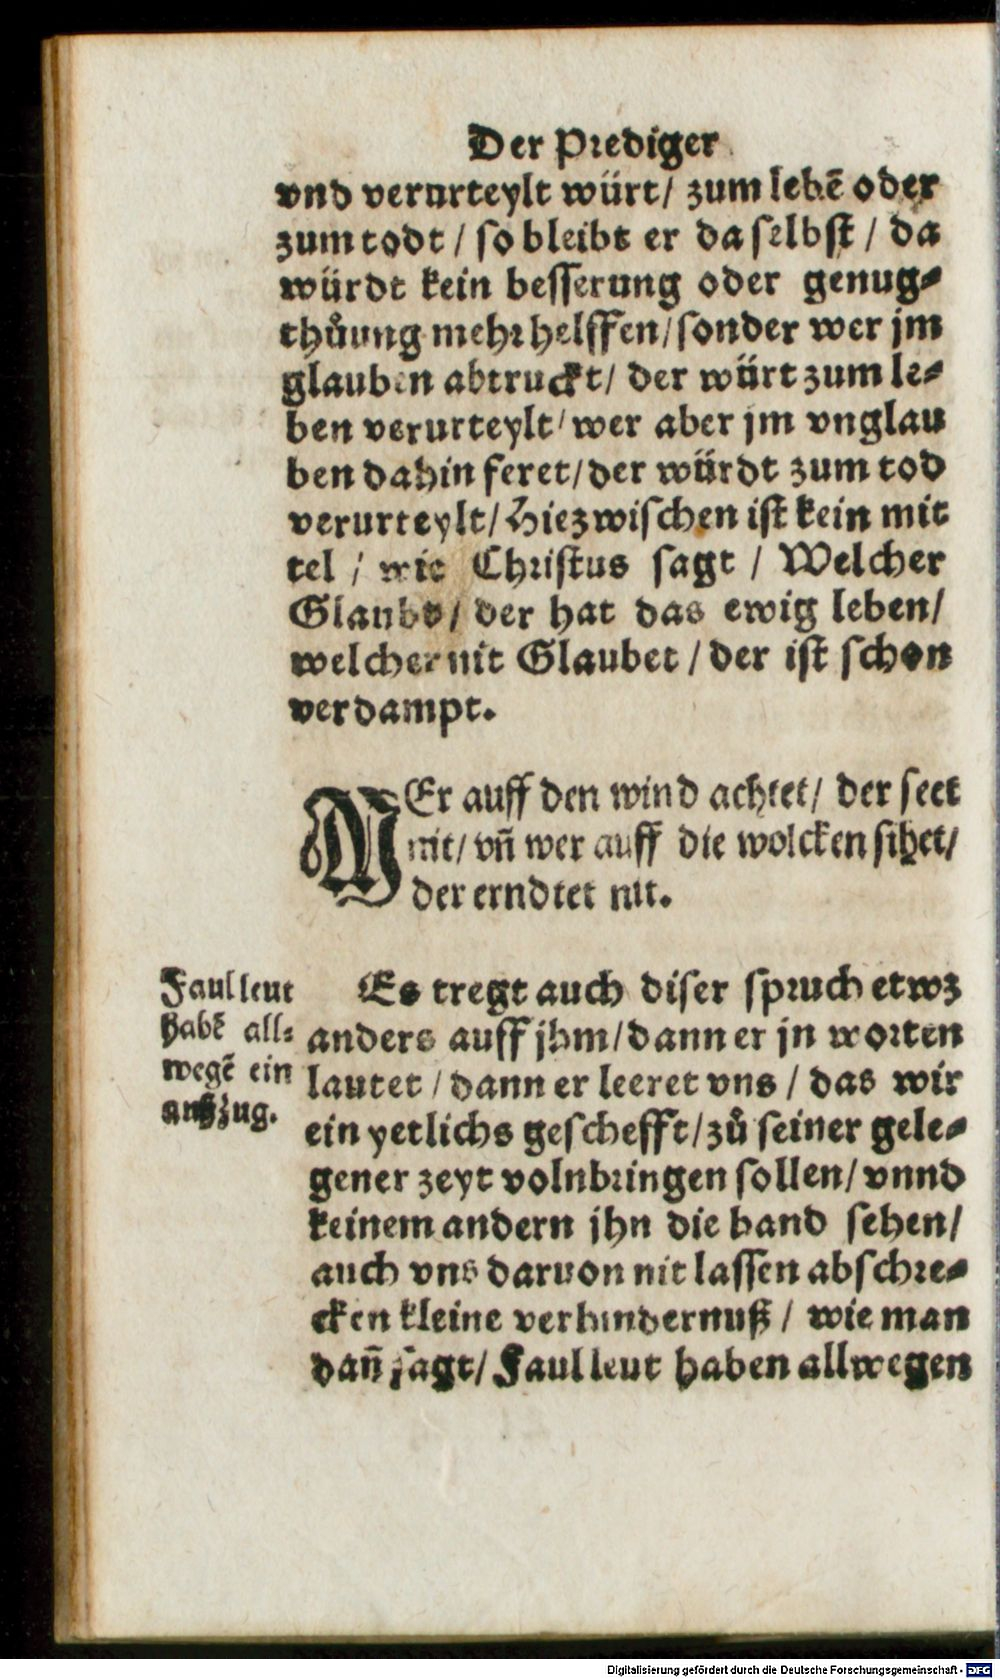 Der Prediger
vnd verurteylt würt/ zum lebē oder
zum todt / so bleibt er daselbst / da
würdt kein besserung oder genug-
thůung mehr helffen/sonder wer jm
glauben abtruckt/ der würt zum le-
ben verurteylt/wer aber jm vnglau
ben dahin feret/der würdt zum tod
verurteylt/Hiezwischen ist kein mit
tel / wie Christus sagt / Welcher
Glaubt/ der hat das ewig leben/
welcher nit Glaubet / der ist schon
verdampt.
WEr auff den wind achtet/ der seet
nit/ vñ wer auff die wolcken sihet/
der erndtet nit.
Faul leut
habē all-
wegē ein
außzug.
Es tregt auch diser spruch etwz
anders auff jhm/dann er jn worten
lautet / dann er leeret vns / das wir
ein yetlichs geschefft/zů seiner gele-
gener zeyt volnbringen sollen/ vnnd
keinem andern jhn die hand sehen/
auch vns daruon nit lassen abschre-
cken kleine verhindernuß / wie man
dañ sagt/ Faul leut haben allwegen
Digitalisierung gefördert durch die Deutsche Forschungsgemeinschaft - DFG